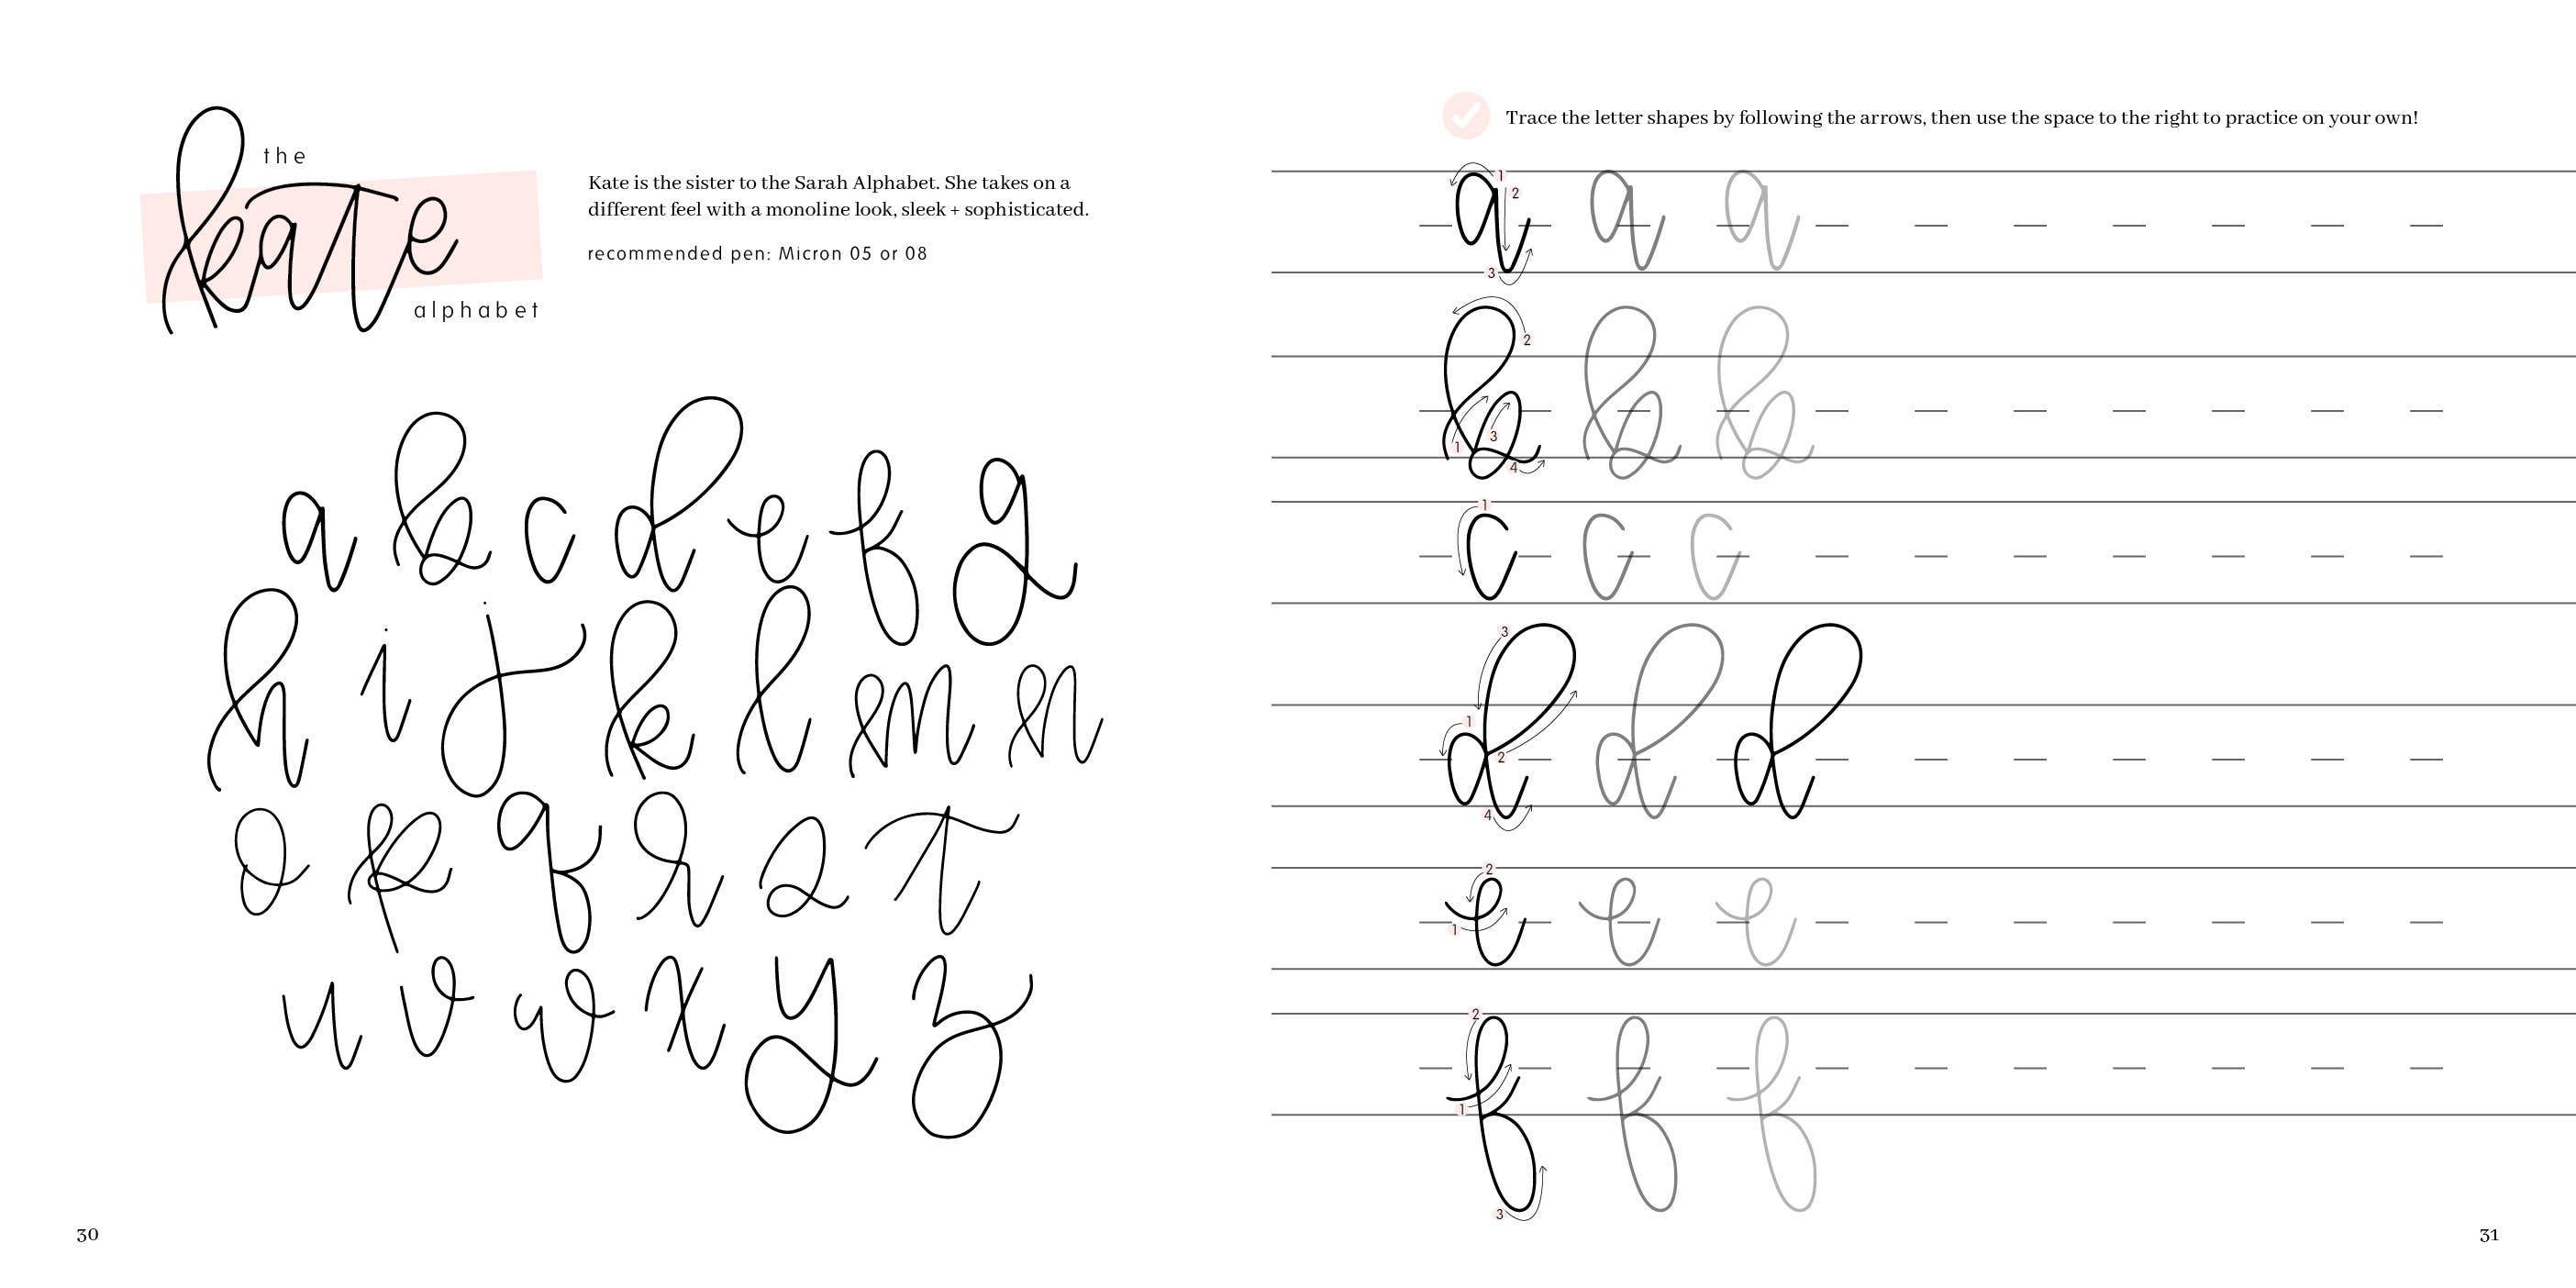 the
kate
alphabet
Kate is the sister to the Sarah Alphabet. She takes on a
different feel with a monoline look, sleek + sophisticated.
recommended pen: Micron 05 or 08
a b c d e f g
h i j k l m n
o p q r s t
u v w x y z
30
Trace the letter shapes by following the arrows, then use the space to the right to practice on your own!
1 2 3 a a a
1 2 3 4 b b b
1 c c c
1 2 3 4 d d d
1 2 e e e
1 2 3 f f f
31